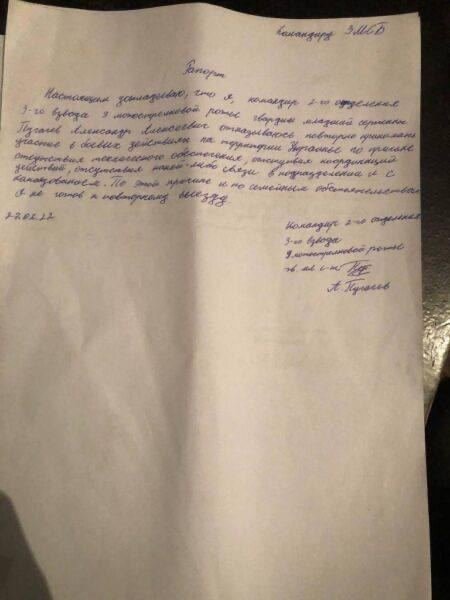 командиру 3МСБ
Рапорт
Настоящим докладываю, что я, командир 2-го отделения
3-го взвода 9 мотострелковой роты гвардии младший сержант
Пугачев Александр Алексеевич отказываюсь повторно принимать
участие в боевых действиях на территории Украины по причине
отсутствия технического обеспечения, отсутствия координаций
действий, отсутствия какой-либо связи в подразделении и с
командованием. По этой причине и по семейным обстоятельствам
я не готов к повторному выезду
22.02.22
Командир 2-го отделения
3-го взвода
9 мотострелковой роты
гв. мл с-т
А. Пугачев